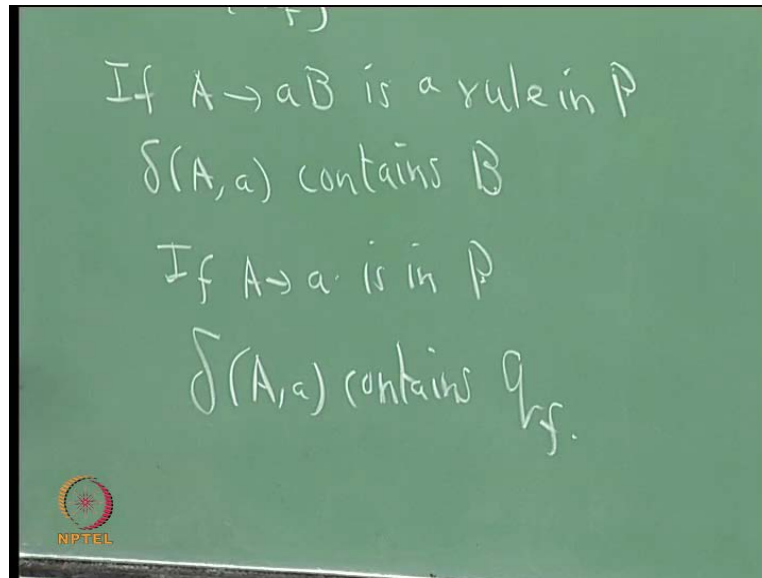 If A → aB is a rule in P
δ(A, a) contains B
If A → a is in P
δ(A, a) contains q_f.
NPTEL